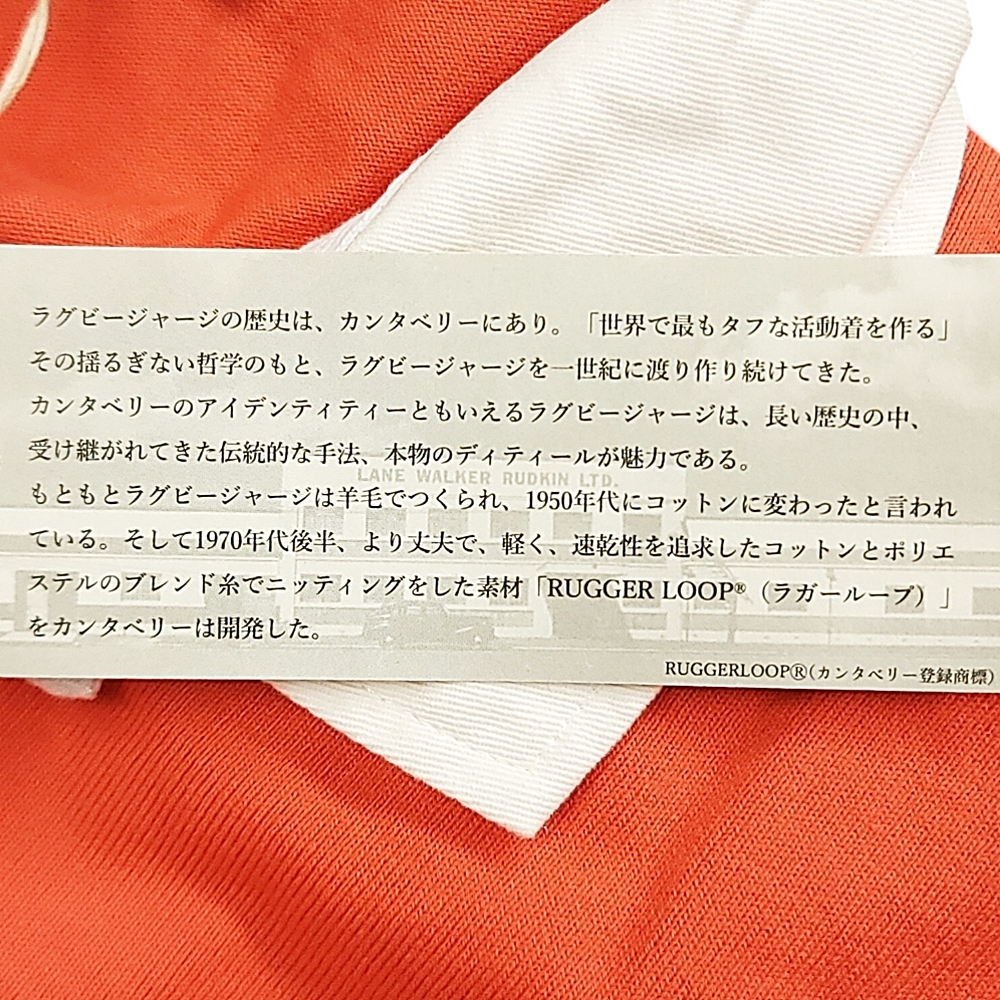 ラグビージャージの歴史は、カンタベリーにあり。「世界で最もタフな活動着を作る」
その揺るぎない哲学のもと、ラグビージャージを一世紀に渡り作り続けてきた。
カンタベリーのアイデンティティーともいえるラグビージャージは、長い歴史の中、
受け継がれてきた伝統的な手法、本物のディティールが魅力である。
LANE WALKER RUDKIN LTD.
もともとラグビージャージは羊毛でつくられ、1950年代にコットンに変わったと言われ
ている。そして1970年代後半、より丈夫で、軽く、速乾性を追求したコットンとポリエ
ステルのブレンド糸でニッティングをした素材「RUGGER LOOP®（ラガーループ）」
をカンタベリーは開発した。
RUGGERLOOP®(カンタベリー登録商標)